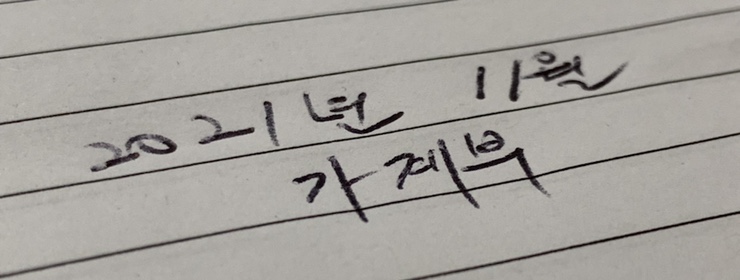 2021년 11월
가계부